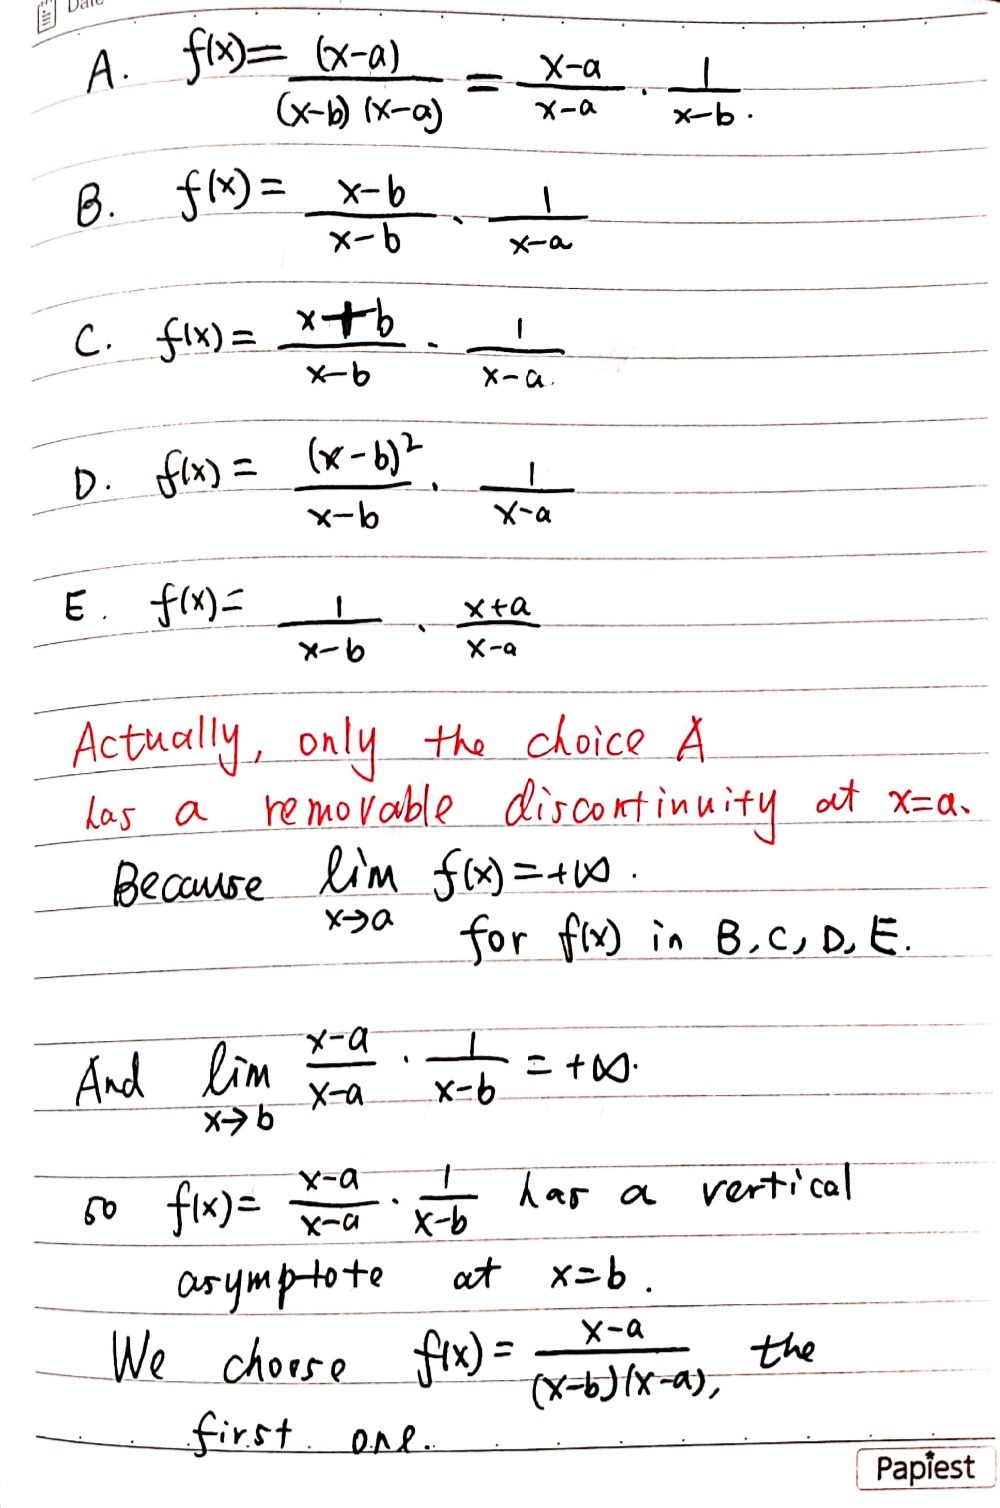 Date
A. f(x)= (x-a)/((x-b)(x-a)) = (x-a)/(x-a) · 1/(x-b).
B. f(x)= (x-b)/(x-b) · 1/(x-a)
C. f(x)= (x+b)/(x-b) · 1/(x-a).
D. f(x)= (x-b)²/(x-b) · 1/(x-a)
E. f(x)= 1/(x-b) · (x+a)/(x-a)
Actually, only the choice A
has a removable discontinuity at x=a.
Because lim x→a f(x)=+∞.
for f(x) in B, C, D, E.
And lim x→b (x-a)/(x-a) · 1/(x-b) = +∞.
so f(x)= (x-a)/(x-a) · 1/(x-b) has a vertical
asymptote at x=b.
We choose f(x)= (x-a)/((x-b)(x-a)), the
first one.
Papiest